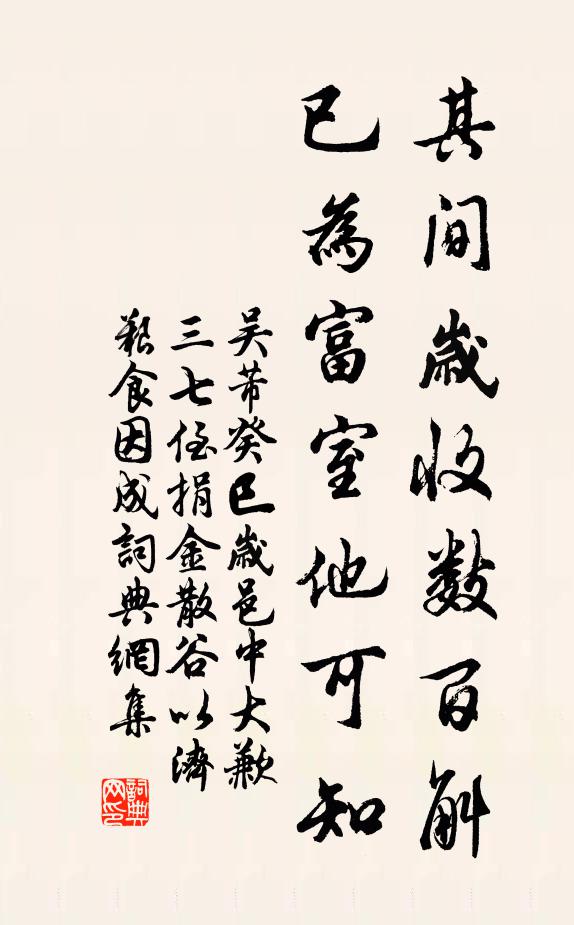 其间岁收数百斛
已為富室他可知
吴芾癸巳歲邑中大歉
三七侄捐金散谷以濟
艱食因成詞典網集
詞典网印